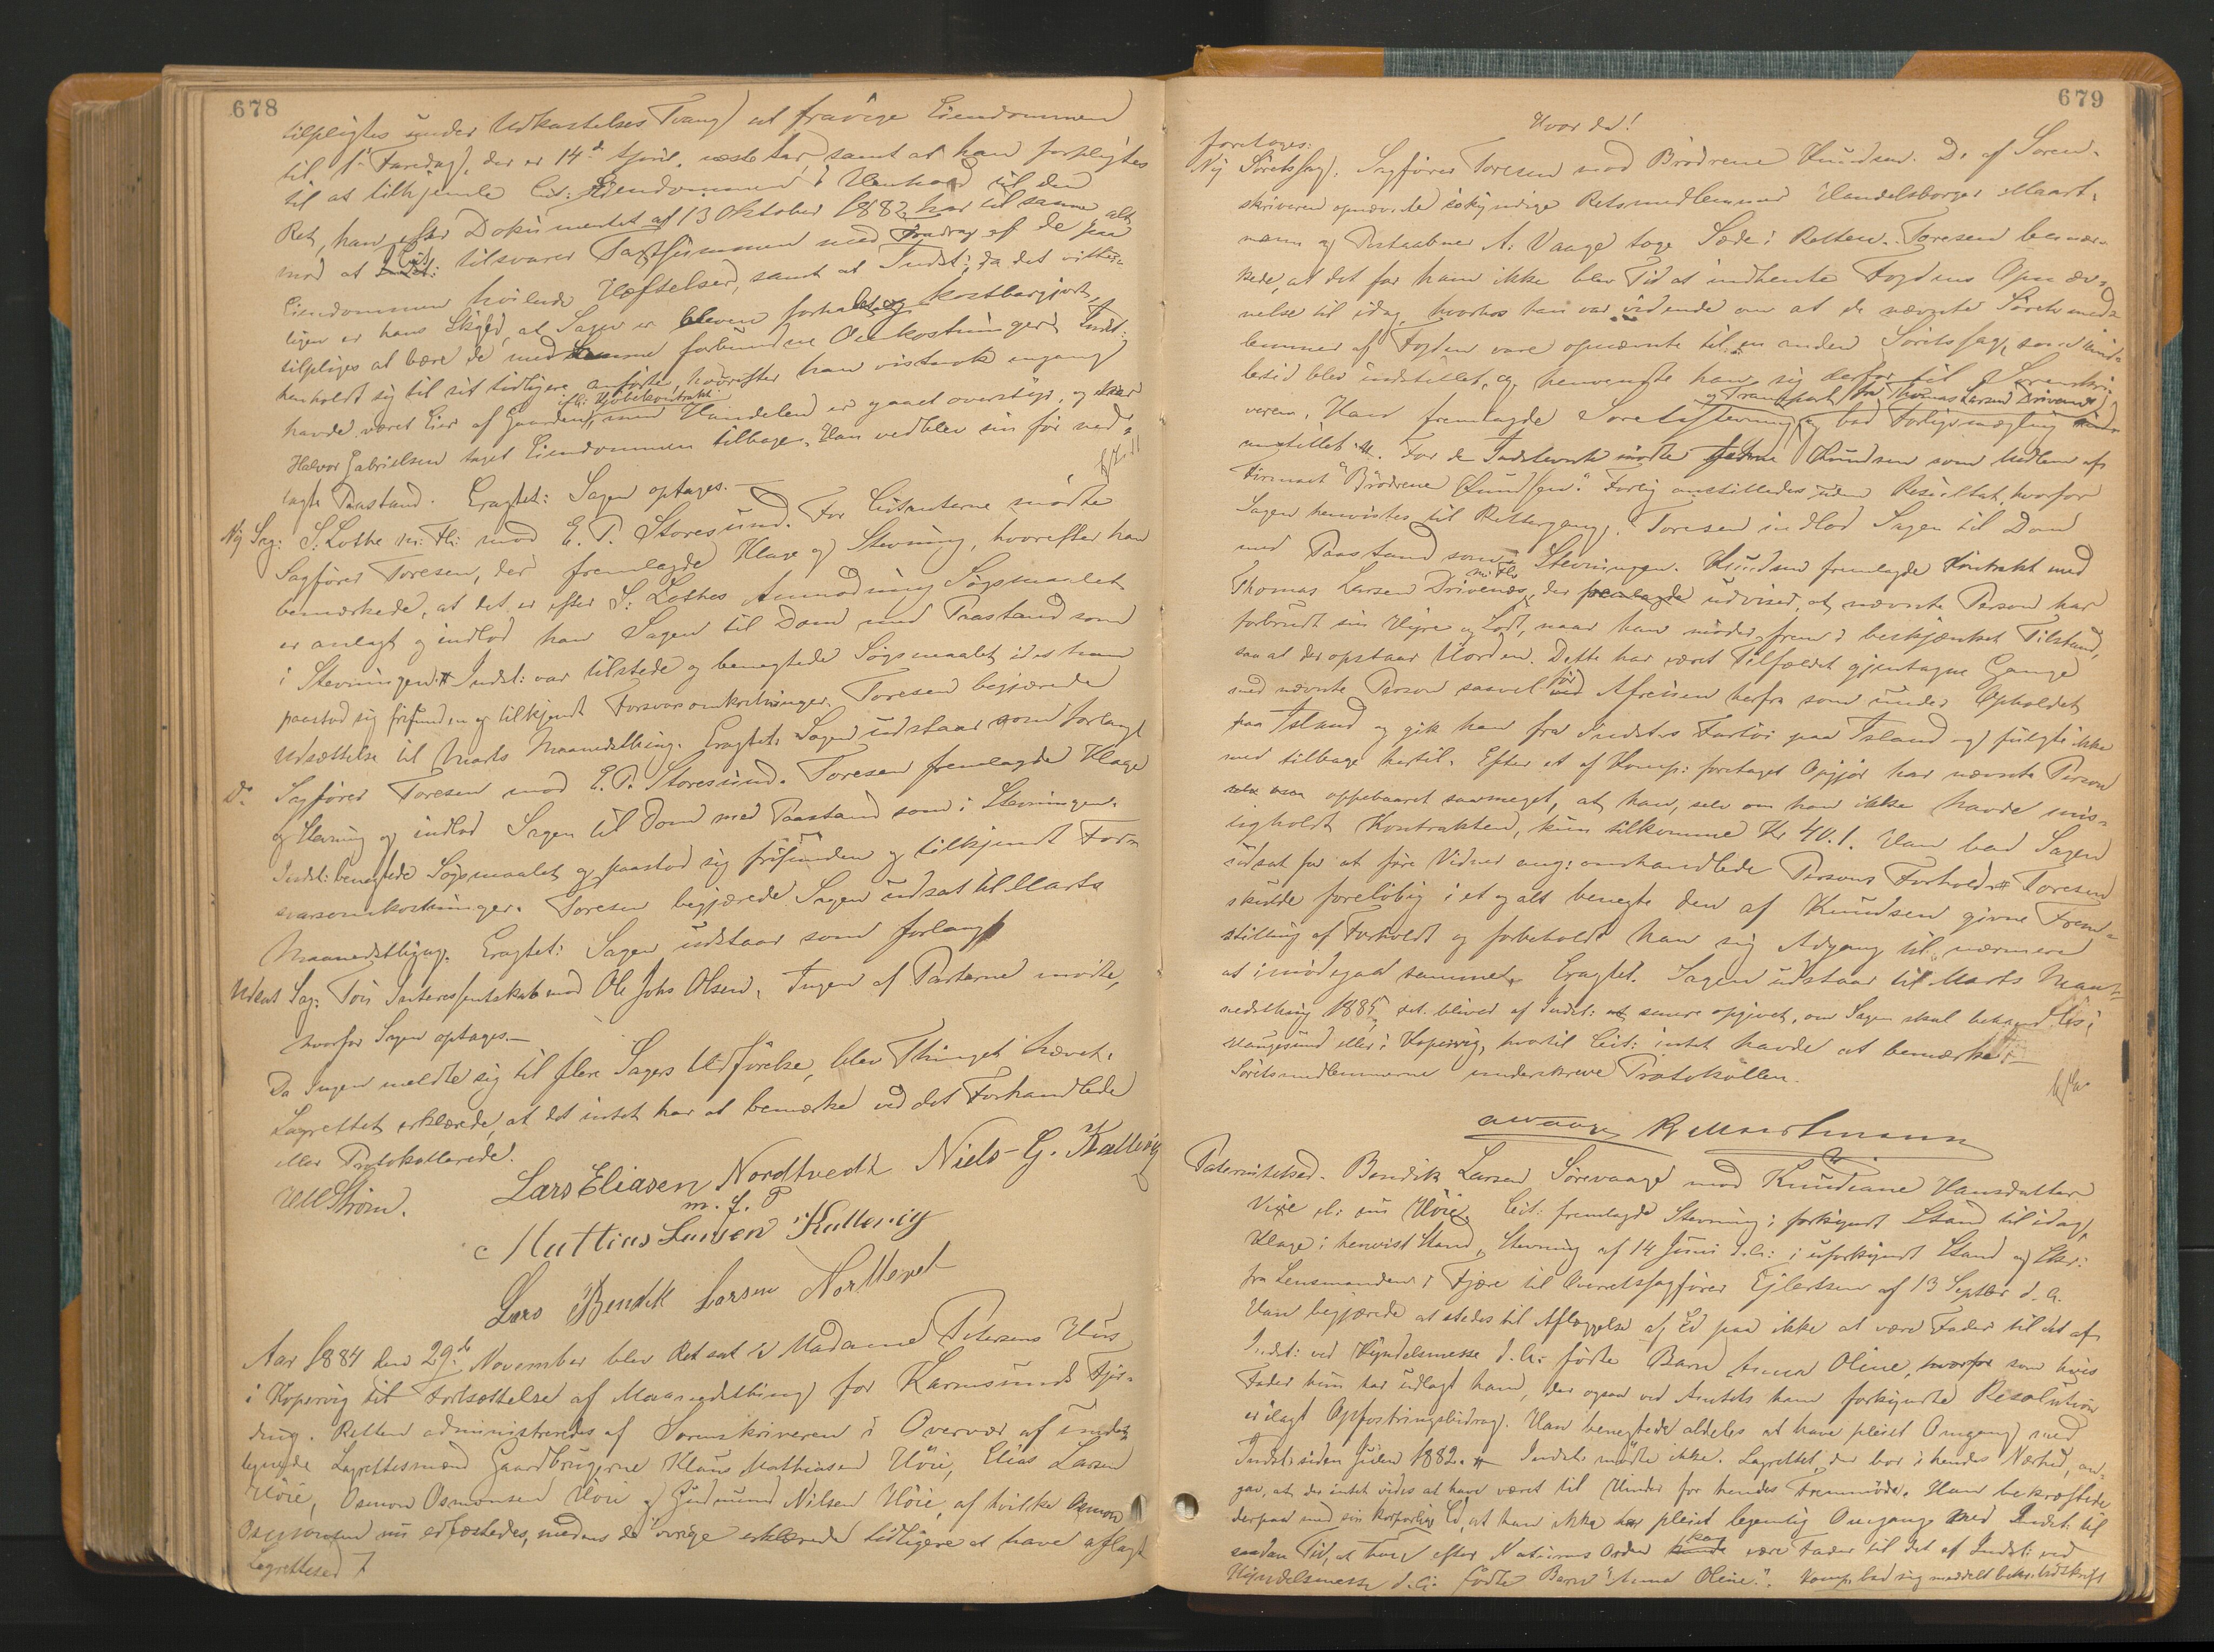 678
tilpligtes under Udkastelses Tvang at fravige Eiendommen
til 1ste Faredag, der er 14de April næste Aar samt at han forpligtes
til at tilhjemle Cit: Eiendommen i Henhold til den
Ret, han efter Dokumentet af 13 Oktober 1882 har til samme alt
mod at Cit: tilsvarer Taxtsummen med Fradrag af de paa
Eiendommen hvilende Heftelser, samt at Indst:, da det vitter-
ligen er hans Skyld, at Sagen er bleven forhalet og kostbargjort,
tilpligtes at bære de med samme forbundne Omkostninger. Indst:
henholdt sig til sit tidligere anførte, hvorefter han vistnok engang
ifl: Kjøbekontrakt
havde været Eier af Gaarden, men Handelen er gaaet overstyr, og har
Halvor Gabrielsen taget Eiendommen tilbage. Han vedblev sin før ned-
lagte Paastand. Eragtet: Sagen optages.—
Ny Sag: S. Lothe m: Fl: mod E. P. Storesund. For Citanterne mødte
Sagfører Toresen, der fremlagde Klage og Stevning, hvorefter han
bemærkede, at det er efter S. Lothes Anmodning Søgsmaalet
er anlagt og indlod han Sagen til Dom med Paastand som
i Stevningen. Indst: var tilstede og benegtede Søgsmaalet idet han
paastod sig frifunden og tilkjendt Forsvarsomkostninger. Toresen begjærede
Udsættelse til Marts Maanedsthing. Eragtet: Sagen udstaar som forlangt
Do Sagfører Toresen mod E. P. Storesund. Toresen fremlagde Klage
og Stevning og indlod Sagen til Dom med Paastand som i Stevningen.
Indst: benegtede Søgsmaalet og paastod sig frifunden og tilkjendt For-
svarsomkostninger. Toresen begjærede Sagen udsat til Marts
Maanedsthing. Eragtet: Sagen udstaar som forlangt
Udsat Sag: Interessentskab mod Ole Johs Olsen. Ingen af Parterne mødte,
hvorfor Sagen optages.—
Da Ingen meldte sig til flere Sagers Udførelse, blev Thinget hævet.
Lagrettet erklærede, at det intet har at bemærke ved det Forhandlede
eller Protokollerede.
Lars Eliasen Nordtvedt Niels G. Kallevig
m. f. P
Strøm.
Mattias Larsen Kallevig
Lars Bendik Larsen Norttevet
Aar 1884 den 29de November blev Ret sat i Madame Petersens Hus
i Kopervig til Fortsættelse af Maanedsthing for Karmsunds Thing-
lag. Retten administreredes af Sorenskriveren i Overvær af undt:
Lagrettesmænd Gaardbrugerne Klaus Mathiasen Høie, Elias Larsen
Høie, Osmon Osmonsen Høie og Gudmund Nilsen Høie, af hvilke Osmon
Osmonsen nu edfæstedes, medens de øvrige erklærede tidligere at have aflagt
Lagretteed
679
Hvor da!
foretoges:
Ny Søretssag: Sagfører Toresen mod Brødrene Knudsen. De af Soren-
skriveren opnævnte søkyndige Retsmedlemmer Handelsborger Maart-
mann og Postaabner A. Vaage toge Sæde i Retten. Toresen bemær-
kede, at det for ham ikke blev Tid at indhente Fogdens Opnæv-
nelse til idag, hvorhos han var vidende om at de nævnte Søretsmed-
lemmer af Fogden vare opnævnte til en anden Søretssag, som imid-
lertid blev indstillet, og henvendte han sig derfor til Sorenskri-
og Transport fra Thomas Larsen Drivenæs
veren. Han fremlagde Søretsstevning og bad Forligsmægling
anstillet. For de Indstevnte mødte Knudsen som Medlem af
Firmaet "Brødrene Knudsen". Forlig anstilledes uden Resultat, hvorfor
Sagen henvistes til Rettergang. Toresen indlod Sagen til Dom
med Paastand som i Stevningen. Knudsen fremlagde Kontrakt med
m. Fl.
Thomas Larsen Drivenæs, der fremlagde udviser, at nævnte Person har
forbrudt sin Hyre og Lodt, naar han møder frem i beskjænket Tilstand,
saa at der opstaar Uorden. Dette har været Tilfældet gjentagne Gange
med nævnte Person saavel før Afreisen herfra som under Opholdet
paa Island og gik han fra Indst:s Fartøi paa Island og fulgte ikke
med tilbage hertil. Efter et af Komp: foretaget Opgjør har nævnte Person
oppebaaret saameget, at han, selv om han ikke havde mis-
ligholdt Kontrakten, kun tilkomme Kr 40.1. Han bad Sagen
udsat for at føre Vidner ang: omhandlede Persons Forhold. Toresen
skulde foreløbig i et og alt benegte den af Knudsen givne Frem-
stilling af Forholdt og forbeholdt han sig Adgang til nærmere
at imødegaa samme. Eragtet. Sagen udstaar til Marts Maa-
nedsthing 1885, det bliver af Indst: senere opgivet, om Sagen skal behandles i
Haugesund eller i Kopervig, hvortil Cit: intet havde at bemærke.—
Søretsmedlemmerne underskreve Protokollen.
AVaage R Maartmann
Paternitetsed. Bendik Larsen Sørevaage mod Knudiane Hansdatter
Vixe nu Høie. Cit: fremlagde Stevning i forkyndt Stand til idag,
Klage i henvist Stand, Stevning af 14 Juni d.A: i uforkyndt Stand og Skr:
fra Lensmanden i Fjære til Overretssagfører Ejlertsen af 13 Septbr d. A.
Han begjærede at stedes til Aflæggelse af Ed paa ikke at være Fader til det af
Indst: ved Kyndelsmesse d. A: fødte Barn Anna Oline, hvorfor som hvis
Fader hun har udlagt ham, der ogsaa ved Amtets ham forkyndte Resolution
er ilagt Opfostringsbidrag. Han benegtede aldeles at have pleiet Omgang med
Indst: siden Julen 1882. Indst: mødte ikke. Lagrettet, der bor i hendes Nærhed, an-
gav, at der intet vides at have været til Hinder for hendes Fremmøde. Han bekræftede
derpaa med sin korporlige Ed, at han ikke har pleiet legemlig Omgang med Indst: til
saadan Tid, at han efter Naturens Orden kan være Fader til det af Indst: ved
Kyndelsmesse d. A: fødte Barn "Anna Oline". Komp. bad sig meddelt bekr. Udskrift